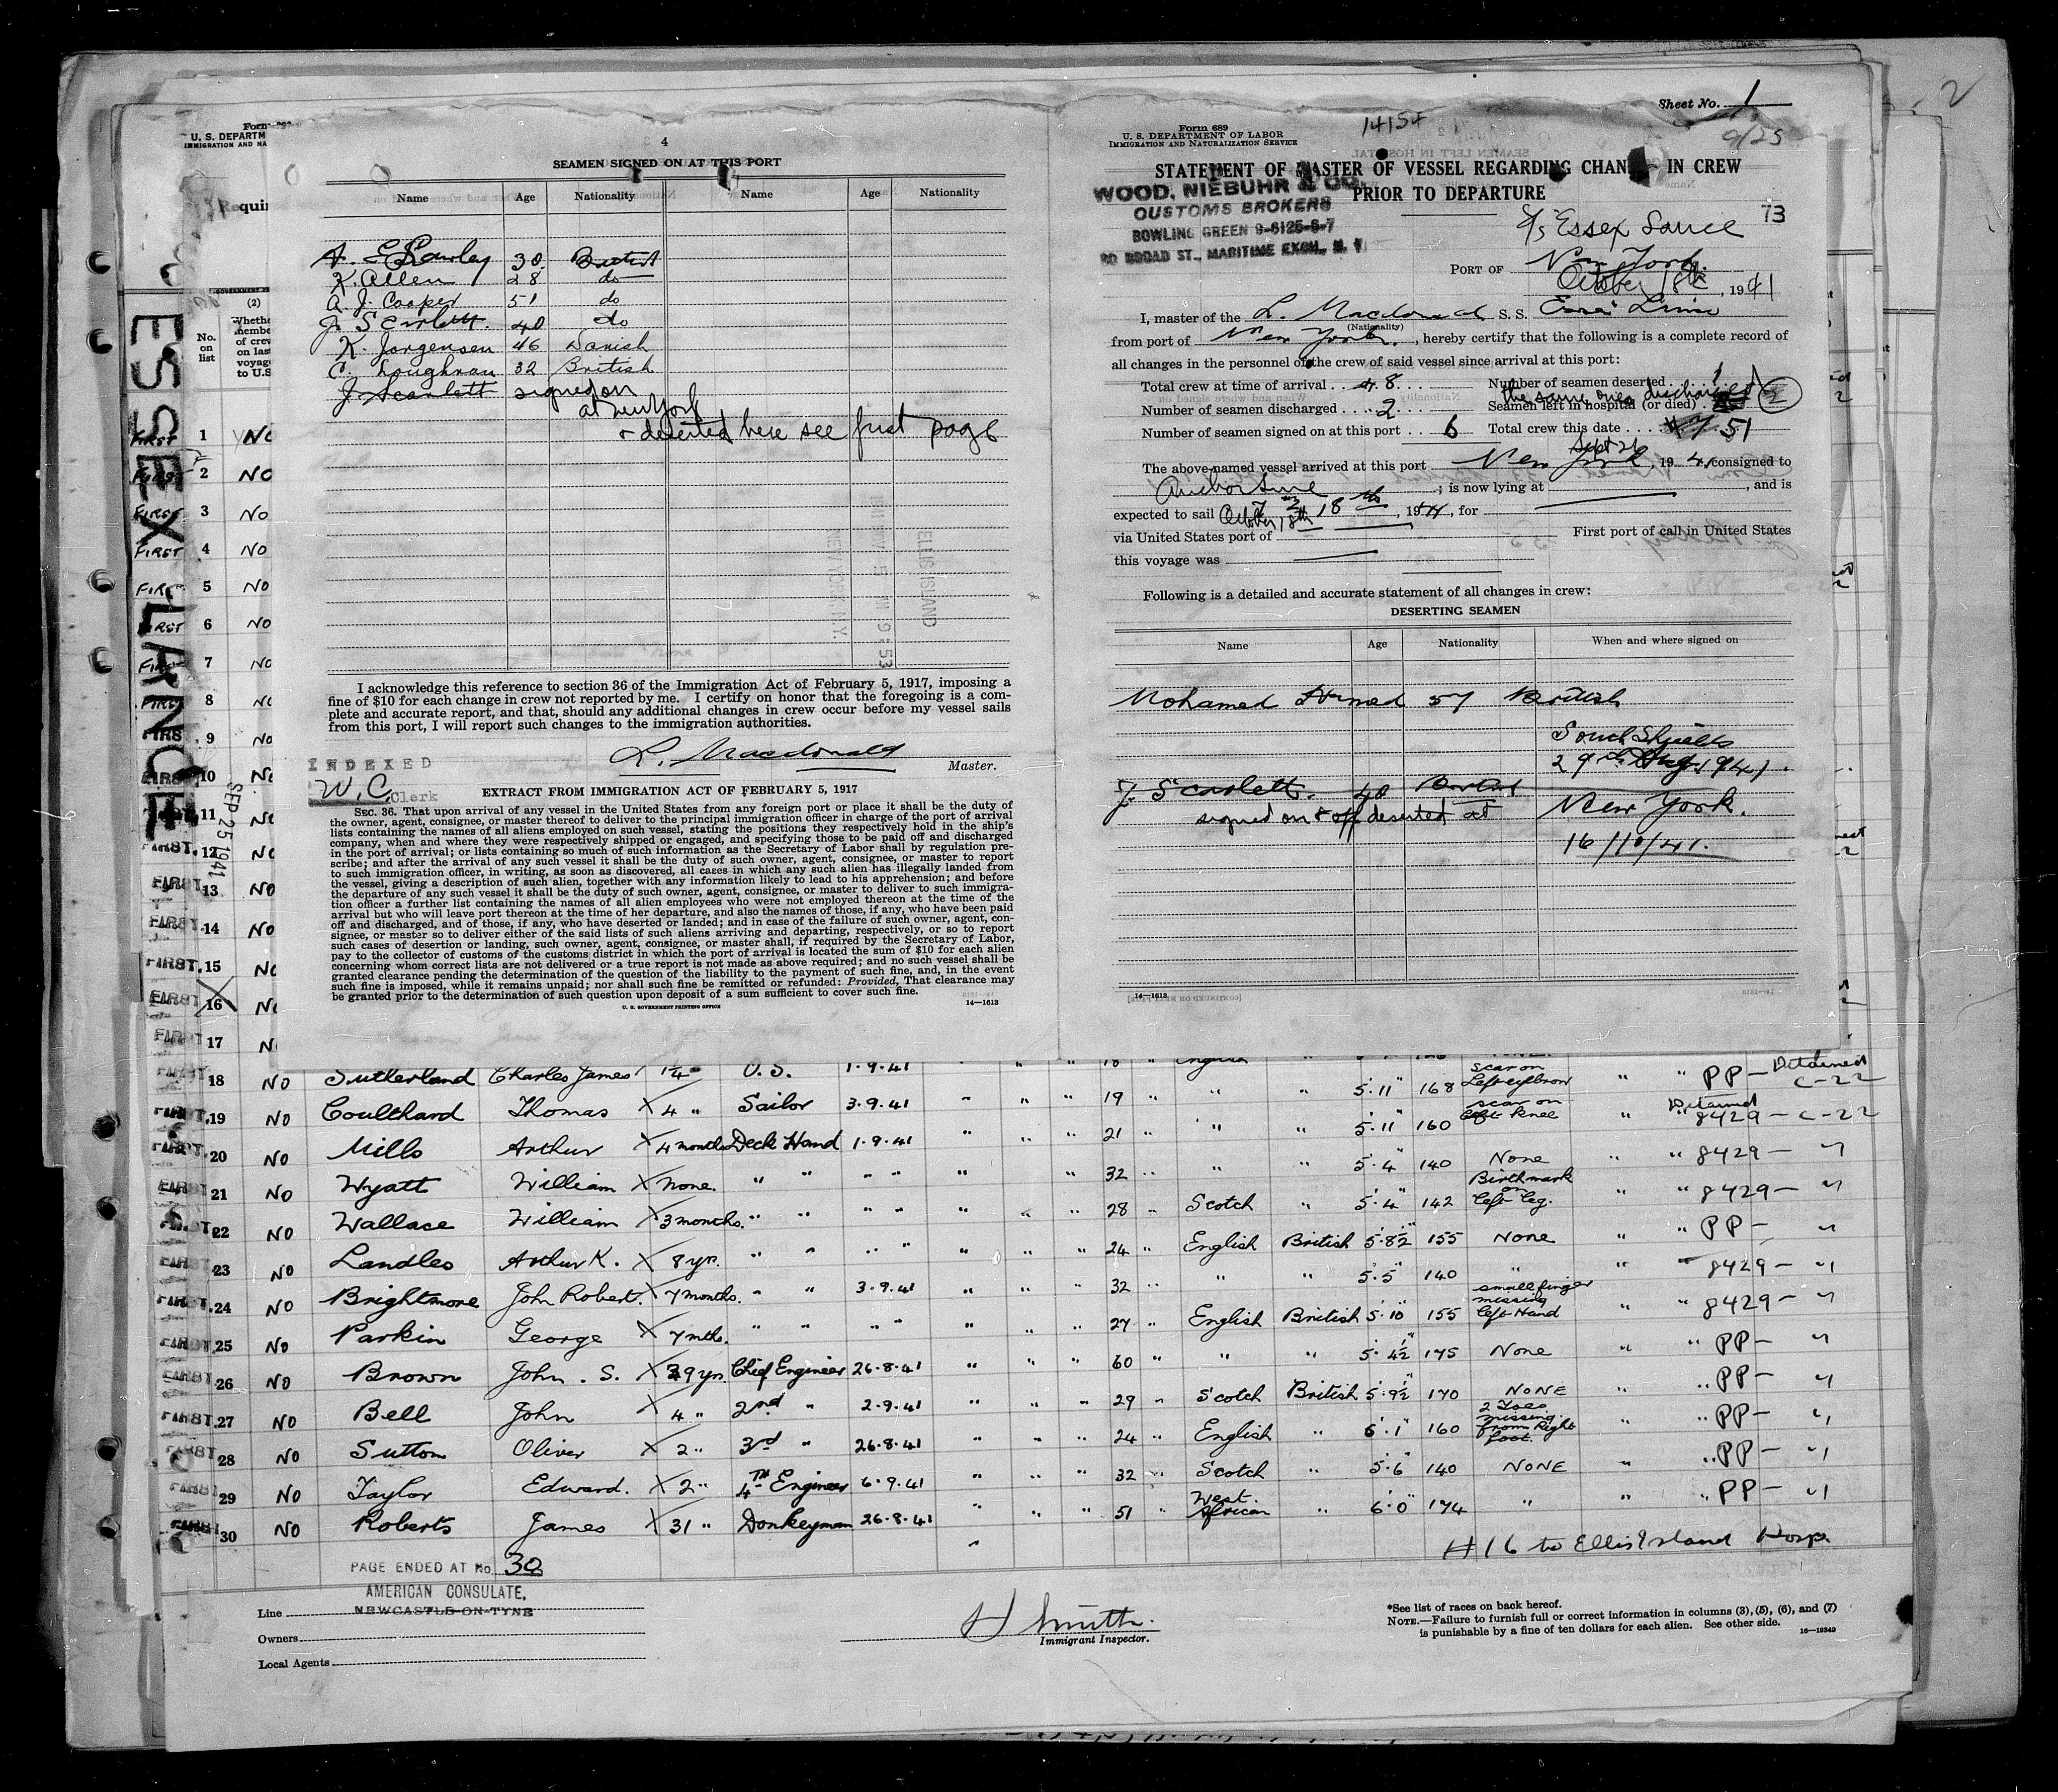 Sheet No. 1
9/25
2
Form
U. S. DEPARTM
IMMIGRATION AND NA
Requir
ESSEX LANCE
SEP 25 1941
No. on list
(2)
Whethe
membe
of crew
on last
voyage
to U.S.
4
SEAMEN SIGNED ON AT THIS PORT
Name Age Nationality Name Age Nationality
30 British
K. Allen 28 do
A. J. Cooper 51 do
J. Scarlett. 40 do
K. Jorgensen 46 Danish
C. Loughran 32 British
J. Scarlett signed on
at New York
+ deserted here see first page
ELLIS ISLAND
NEW YORK N.Y.
I acknowledge this reference to section 36 of the Immigration Act of February 5, 1917, imposing a
fine of $10 for each change in crew not reported by me. I certify on honor that the foregoing is a com-
plete and accurate report, and that, should any additional changes in crew occur before my vessel sails
from this port, I will report such changes to the immigration authorities.
L. Macdonald Master.
INDEXED
W.C. Clerk
EXTRACT FROM IMMIGRATION ACT OF FEBRUARY 5, 1917
SEC. 36. That upon arrival of any vessel in the United States from any foreign port or place it shall be the duty of
the owner, agent, consignee, or master thereof to deliver to the principal immigration officer in charge of the port of arrival
lists containing the names of all aliens employed on such vessel, stating the positions they respectively hold in the ship's
company, when and where they were respectively shipped or engaged, and specifying those to be paid off and discharged
in the port of arrival; or lists containing so much of such information as the Secretary of Labor shall by regulation pre-
scribe; and after the arrival of any such vessel it shall be the duty of such owner, agent, consignee, or master to report
to such immigration officer, in writing, as soon as discovered, all cases in which any such alien has illegally landed from
the vessel, giving a description of such alien, together with any information likely to lead to his apprehension; and before
the departure of any such vessel it shall be the duty of such owner, agent, consignee, or master to deliver to such immigra-
tion officer a further list containing the names of all alien employees who were not employed thereon at the time of the
arrival but who will leave port thereon at the time of her departure, and also the names of those, if any, who have been paid
off and discharged, and of those, if any, who have deserted or landed; and in case of the failure of such owner, agent, con-
signee, or master so to deliver either of the said lists of such aliens arriving and departing, respectively, or so to report
such cases of desertion or landing, such owner, agent, consignee, or master shall, if required by the Secretary of Labor,
pay to the collector of customs of the customs district in which the port of arrival is located the sum of $10 for each alien
concerning whom correct lists are not delivered or a true report is not made as above required; and no such vessel shall be
granted clearance pending the determination of the question of the liability to the payment of such fine, and, in the event
such fine is imposed, while it remains unpaid; nor shall such fine be remitted or refunded: Provided, That clearance may
be granted prior to the determination of such question upon deposit of a sum sufficient to cover such fine.
U. S. GOVERNMENT PRINTING OFFICE 14—1613
Form 689
U. S. DEPARTMENT OF LABOR
IMMIGRATION AND NATURALIZATION SERVICE
14154
STATEMENT OF MASTER OF VESSEL REGARDING CHANGE IN CREW
PRIOR TO DEPARTURE
WOOD, NIEBUHR & CO.
CUSTOMS BROKERS
BOWLING GREEN 9-6125-6-7
BROAD ST., MARITIME EXCH., N. Y.
73
S/S Essex Lance
PORT OF New York
October 18th, 1941
I, master of the L. Macdonald S. S. Essex Lance
(Nationality)
from port of New York, hereby certify that the following is a complete record of
all changes in the personnel of the crew of said vessel since arrival at this port:
Total crew at time of arrival 48 Number of seamen deserted 1
Number of seamen discharged 2 Seamen left in hospital (or died)
the same ones discharged 2
Number of seamen signed on at this port 6 Total crew this date 51
Sept 26
The above-named vessel arrived at this port New York, 1941, consigned to
Anchor Line; is now lying at , and is
expected to sail October 18th, 1941, for
via United States port of First port of call in United States
this voyage was
Following is a detailed and accurate statement of all changes in crew:
DESERTING SEAMEN
Name Age Nationality When and where signed on
Mohamed Ahmed 57 British
South Shields
29th Aug. 1941.
J. Scarlett. 40 British New York.
signed on + off deserted at
16/10/41.
14—1613
FIRST 1 NO
FIRST 2 NO
FIRST 3 NO
FIRST 4 NO
FIRST 5 NO
FIRST 6 NO
FIRST 7 NO
FIRST 8 NO
FIRST 9 NO
FIRST 10 NO
FIRST 11 NO
FIRST 12 NO
FIRST 13 NO
FIRST 14 NO
FIRST 15 NO
FIRST 16 NO
FIRST 17 NO
FIRST 18 NO Sutherland Charles James 1¼ O.S. 1.9.41 " " " 18 " English
FIRST 19 NO Coulthard Thomas X 4 " Sailor 3.9.41 " " " 19 " " " 5.11" 168 scar on Left eyebrow " " PP — Detained C-22
FIRST 20 NO Mills Arthur X 4 months Deck Hand 1.9.41 " " " 21 " " 5.11" 160 scar on left knee " " Detained 8429 — C-22
FIRST 21 NO Wyatt William X None. " " " " " " 32 " " " 5.4" 140 None " " 8429 — "
FIRST 22 NO Wallace William X 3 months. " " " " " " " 28 " Scotch " 5.4" 142 Birthmark on left leg. " " 8429 — "
FIRST 23 NO Landles Arthur K. X 8 yrs. " " " " " " " 24 " English British 5.8½" 155 None " " PP — "
FIRST 24 NO Brightmore John Robert. X 7 months. " " 3.9.41 " " " 32 " " " 5.5" 140 " " 8429 — "
FIRST 25 NO Parkin George X 7 mths. " " " " " " " 27 " English British 5.10" 155 small finger missing left Hand " " 8429 — "
FIRST 26 NO Brown John. S. X 39 yrs. Chief Engineer 26.8.41 " " " 60 " " " 5.4½" 175 None " " PP — "
FIRST 27 NO Bell John X 4 " 2nd " 2.9.41 " " " 29 " Scotch British 5.9½" 170 NONE " PP — "
FIRST 28 NO Sutton Oliver X 2 " 3rd " 26.8.41 " " " 24 " English " 6.1" 160 2 Toes missing from Right foot. " " PP — "
FIRST 29 NO Taylor Edward. X 2 " 4TH Engineer 6.9.41 " " " 32 " Scotch " 5.6" 140 NONE " " PP — "
FIRST 30 NO Roberts James X 31 " Donkeyman 26.8.41 " " " 51 " West African " 6.0" 174 " " " PP — "
# 16 to Ellis Island Hosp.
PAGE ENDED AT No. 30
AMERICAN CONSULATE,
NEWCASTLE-ON-TYNE
Line
Owners
Local Agents
H Smith.
Immigrant Inspector.
*See list of races on back hereof.
NOTE.—Failure to furnish full or correct information in columns (3), (5), (6), and (7)
is punishable by a fine of ten dollars for each alien. See other side. 16—19349